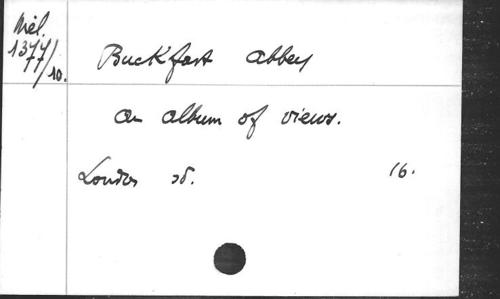 Mél.
1377/
77/10.
Buckfast abbey
an album of views.
London 16.